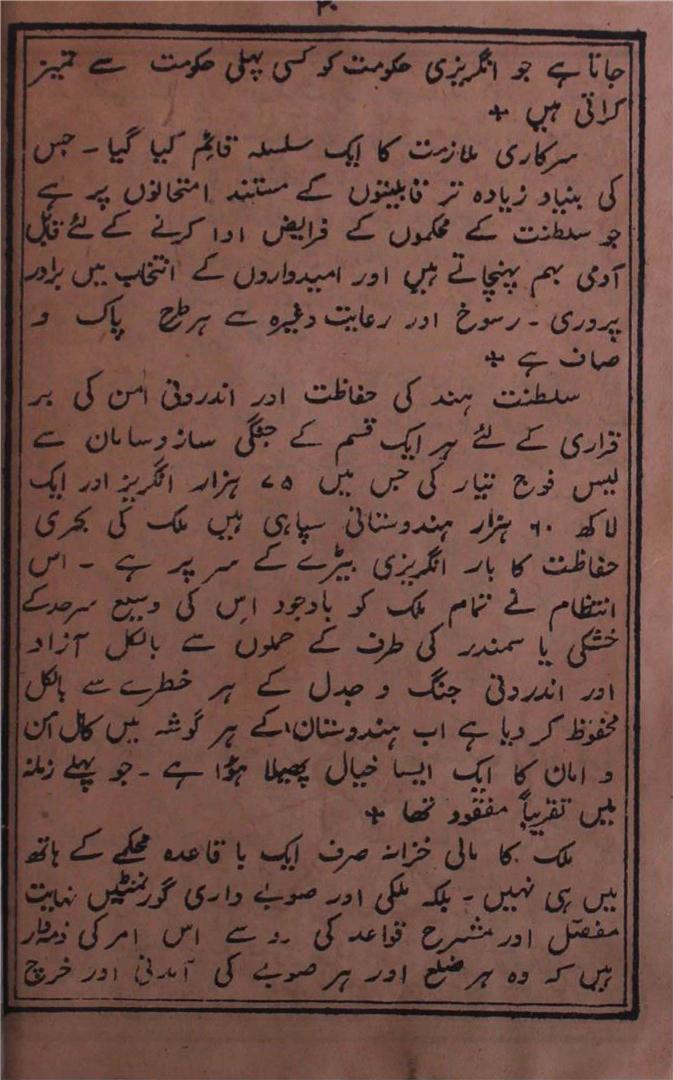 ۳۰
جاتا ہے جو انگریزی حکومت کو کسی پہلی حکومت سے تمیز
کراتی ہیں +
سرکاری ملازمت کا ایک سلسلہ قائم کیا گیا ۔ جس
کی بنیاد زیادہ تر قابلیتوں کے مستند امتحانوں پر ہے
جو سلطنت کے محکموں کے فرایض ادا کرنے کے لئے قابل
آدمی بہم پہنچاتے ہیں اور امیدواروں کے انتخاب میں برادر
پروری ۔ رسوخ اور رعایت وغیرہ سے ہر طرح پاک و
صاف ہے +
سلطنت ہند کی حفاظت اور اندرونی امن کی بر
قراری کے لئے ہر ایک قسم کے جنگی ساز و سامان سے
لیس فوج تیار کی جس میں ۷۵ ہزار انگریز اور ایک
لاکھ ۶۰ ہزار ہندوستانی سپاہی ہیں ملک کی بحری
حفاظت کا بار انگریزی بیڑے کے سر پر ہے ۔ اس
انتظام نے تمام ملک کو باوجود اِس کی وسیع سرحد کے
خشکی یا سمندر کی طرف کے حملوں سے بالکل آزاد
اور اندرونی جنگ و جدل کے ہر خطرے سے بالکل
محفوظ کر دیا ہے اب ہندوستان کے ہر گوشہ میں کامل امن
و امان کا ایک ایسا خیال پھیلا ہؤا ہے ۔ جو پہلے زمانہ
میں تقریباً مفقود تھا +
ملک کا مالی خزانہ صرف ایک با قاعدہ محکمے کے ہاتھ
میں ہی نہیں ۔ بلکہ ملکی اور صوبے واری گورنمنٹیں نہایت
مفصّل اور مشرح قواعد کی رو سے اس امر کی ذمہ وار
ہیں کہ وہ ہر ضلع اور ہر صوبے کی آمدنی اور خرچ